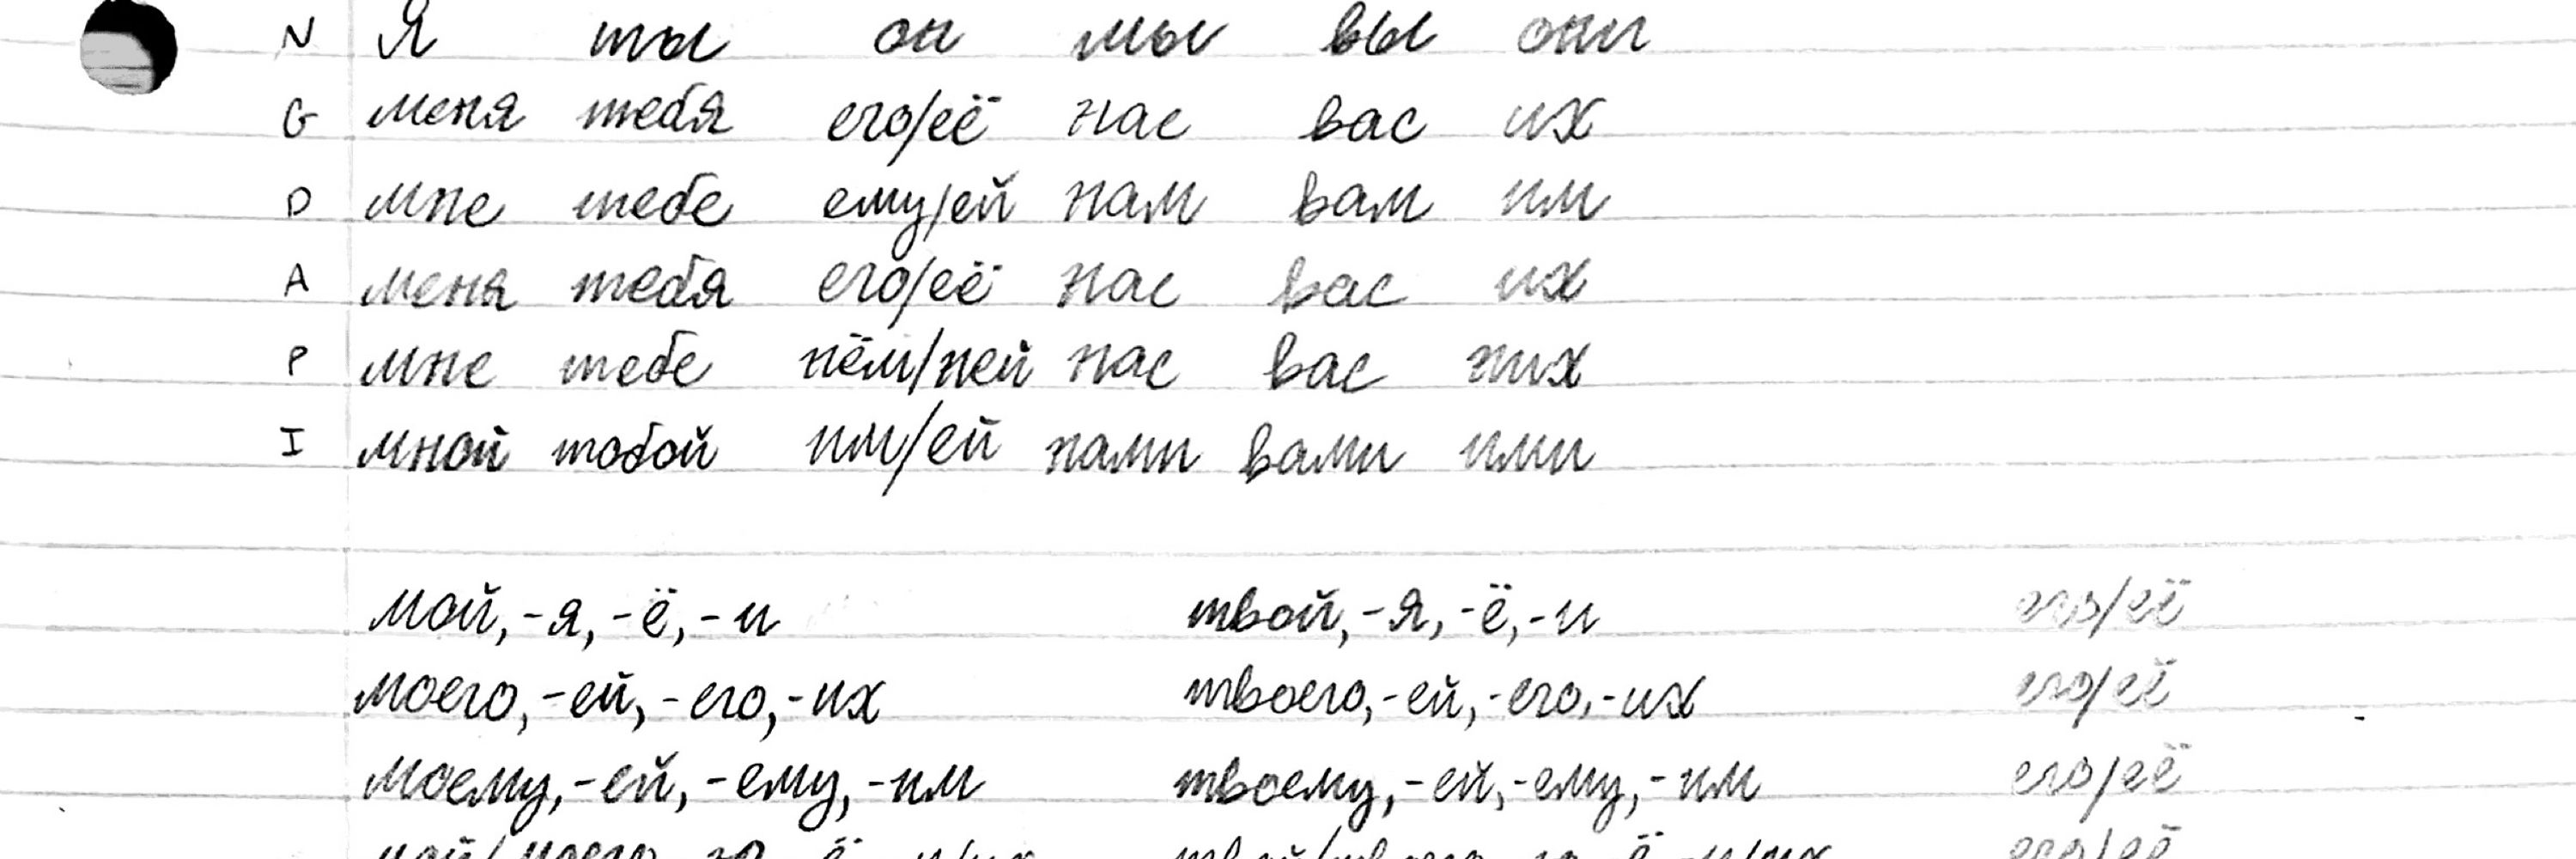 N Я ты он мы вы они
G меня тебя его/её нас вас их
D мне тебе ему/ей нам вам им
A меня тебя его/её нас вас их
P мне тебе нём/ней нас вас них
I мной тобой им/ей нами вами ими
мой, -я, -ё, -и твой, -я, -ё, -и его/её
моего, -ей, -его, -их твоего, -ей, -его, -их его/её
моему, -ей, -ему, -им твоему, -ей, -ему, -им его/её
мой/моего его/её